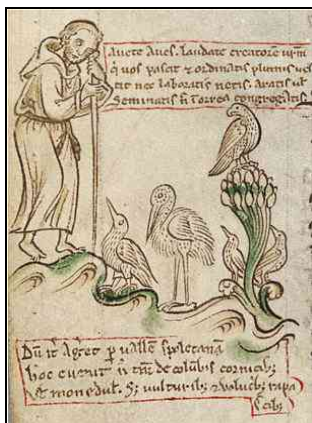 Avete Aves. laudate creatorē urm̄
q̇ uos pascit ⁊ ordinatis plumis ues
tit nec laboratis netis. Aratis uł
Seminatis n̄ horrea congregatis.
Dū it̃ Ageret p̱ uallē spoletanā
hoc euenit n̄ tm̄ de colubis cornicibȝ
⁊ monedul. Sȝ uulturibȝ ⁊ uolucbȝ rapa
cibȝ